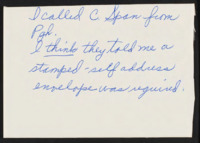 I called C Span from
Pgh.
I think they told me a
stamped-self address
envelope was required.